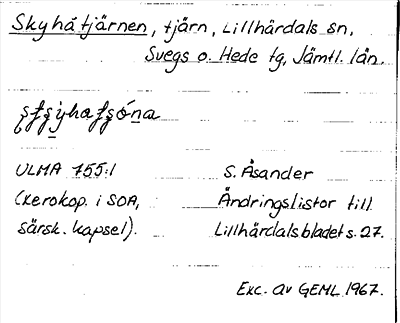 Skyhåtjärnen, tjärn, Lillhärdals sn,
Svegs o. Hede tg, Jämtl. län.
ULMA 755:1 S. Åsander
(xerokop. i SOA, Ändringslistor till
särsk. kapsel). Lillhärdalsbladet s. 27.
Exc. av GEML 1967.